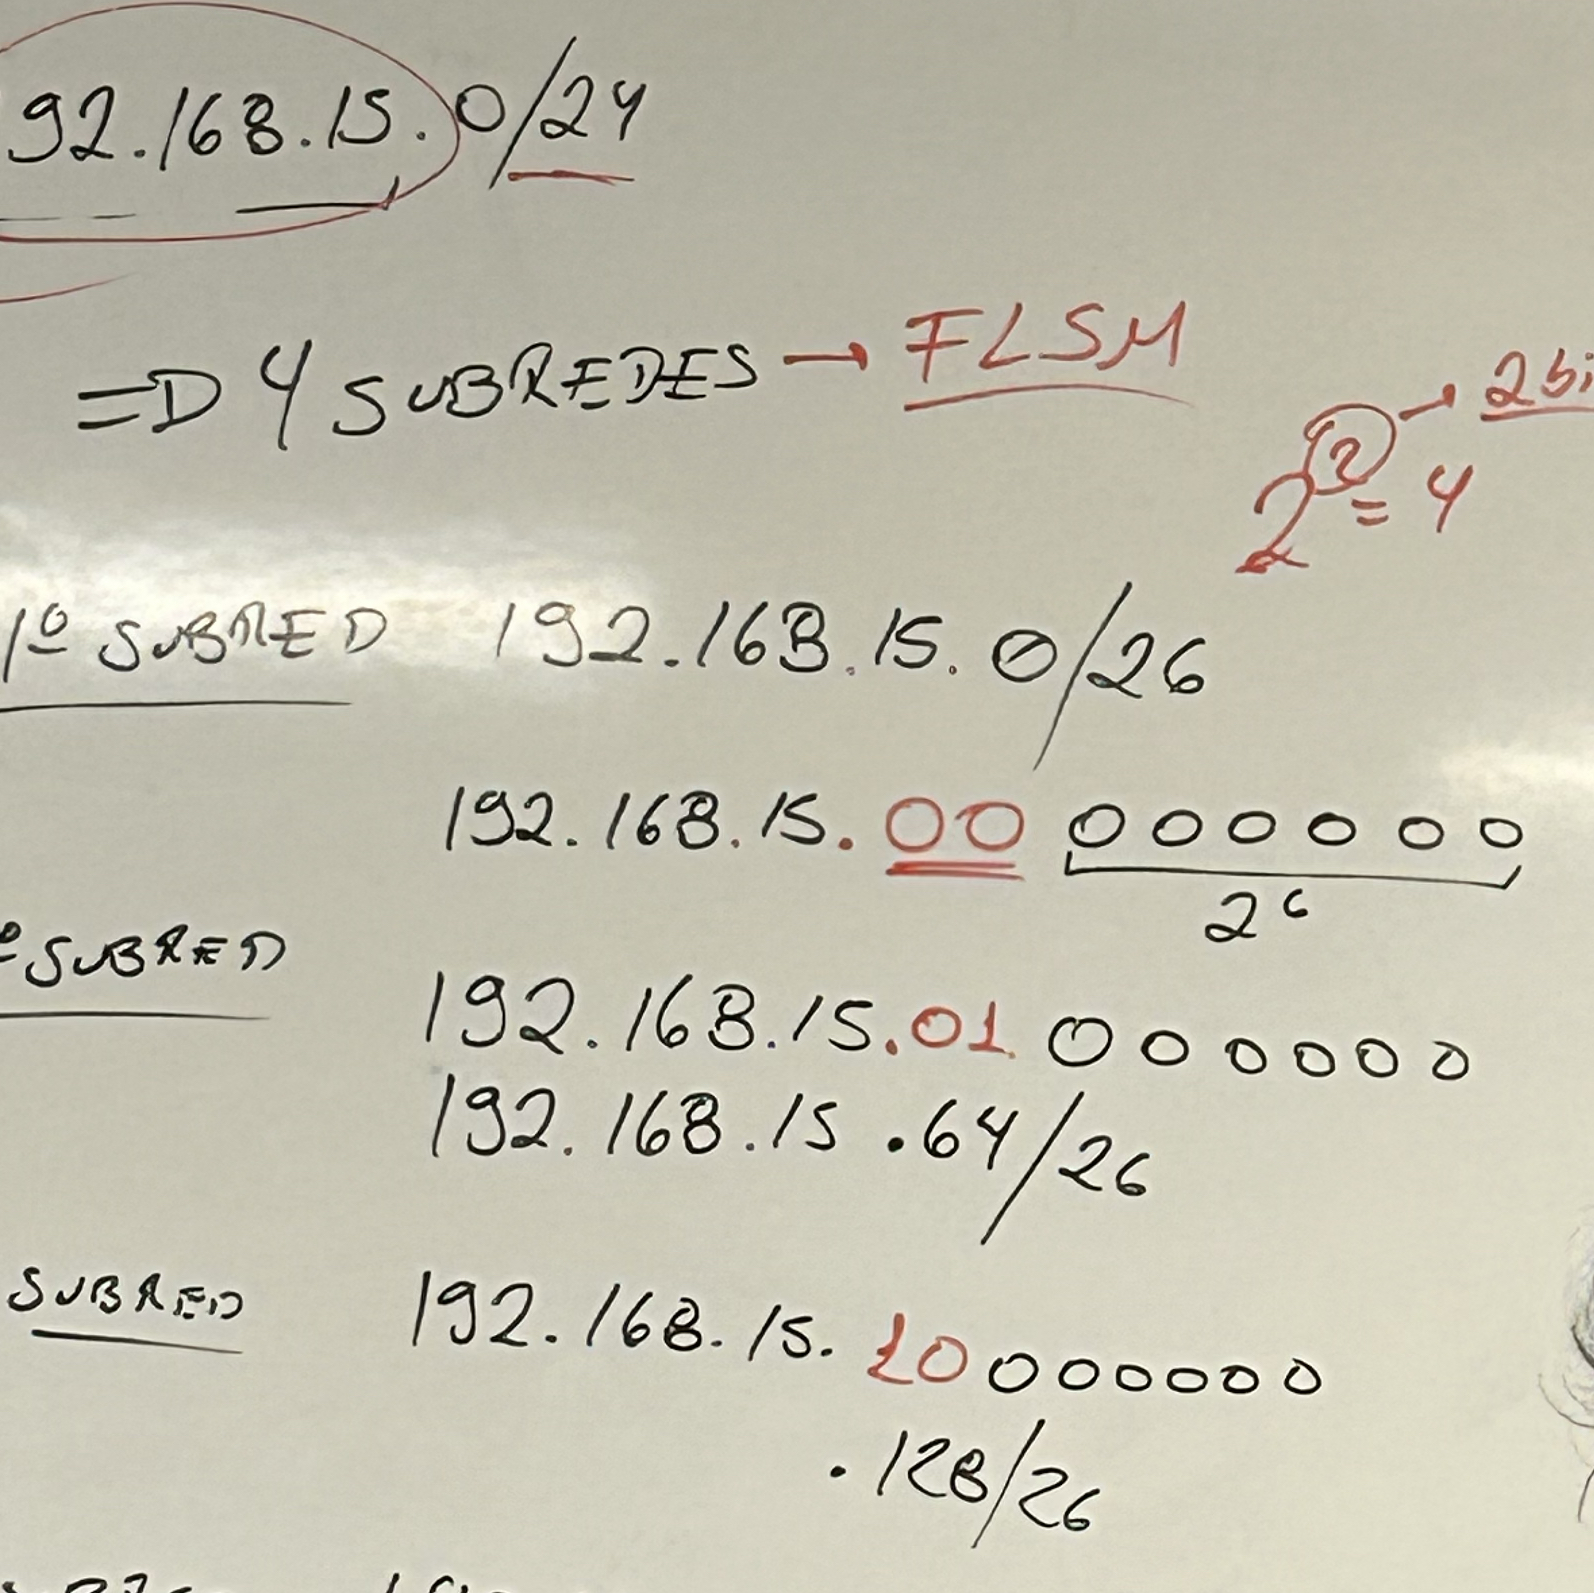 92.168.15.0/24
=D 4 SUBREDES → FLSM
→ 2bi
2² = 4
1º SUBRED 192.168.15.0/26
192.168.15.00 000000
2⁶
º SUBRED
192.168.15.01 000000
192.168.15.64/26
SUBRED 192.168.15.10000000
.128/26